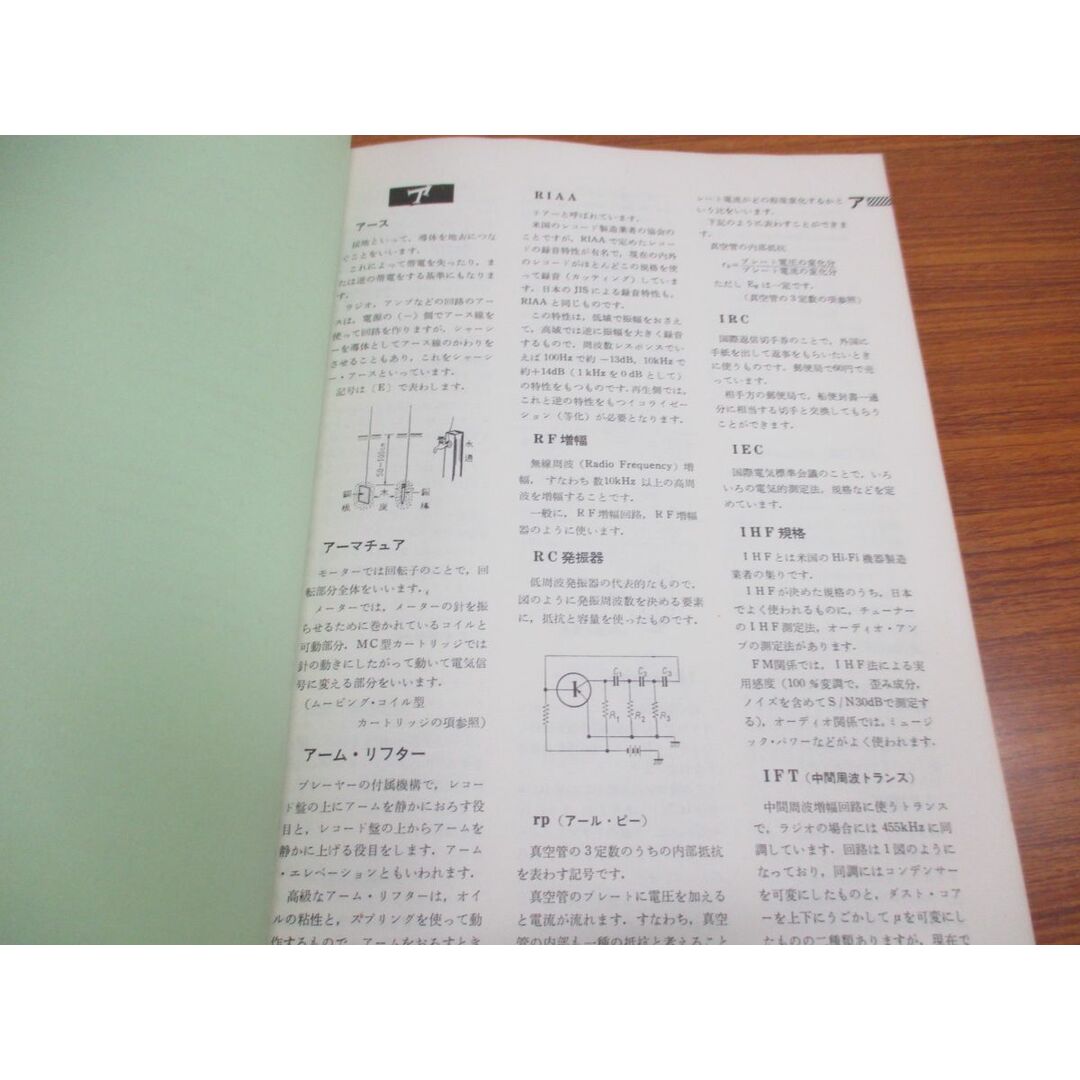 ア
アース
接地といって，導体を地表につな
ぐことをいいます．
これによって帯電を失ったり，ま
たは逆の帯電をする基準にもなりま
す．
ラジオ，アンプなどの回路のアー
スは，電源の（－）側でアース線を
使って回路を作りますが，シャーシ
ーを導体としてアース線のかわりを
させることもあり，これをシャーシ
ー・アースといっています．
記号は〔E〕で表わします．
50～100cm
銅板
木炭
銅棒
水道
アーマチュア
モーターでは回転子のことで，回
転部分全体をいいます．
メーターでは，メーターの針を振
らせるために巻かれているコイルと
可動部分．MC型カートリッジでは
針の動きにしたがって動いて電気信
号に変える部分をいいます．
（ムービング・コイル型
カートリッジの項参照）
アーム・リフター
プレーヤーの付属機構で，レコー
ド盤の上にアームを静かにおろす役
目と，レコード盤の上からアームを
静かに上げる役目をします．アーム
・エレベーションともいわれます．
高級なアーム・リフターは，オイ
ルの粘性と，スプリングを使って動
作するもので，アームをおろすとき
RIAA
リアーと呼ばれています．
米国のレコード製造業者の協会の
ことですが，RIAAで定めたレコー
ドの録音特性が有名で，現在の内外
のレコードがほとんどこの規格を使
って録音（カッティング）していま
す．日本のJISによる録音特性も，
RIAAと同じものです．
この特性は，低域で振幅をおさえ
て，高域では逆に振幅を大きく録音
するもので，周波数レスポンスでい
えば100Hzで約－13dB，10kHzで
約＋14dB（1kHzを0dBとして）
の特性をもつものです．再生側では，
これと逆の特性をもつイコライゼー
ション（等化）が必要となります．
RF増幅
無線周波（Radio Frequency）増
幅，すなわち数10kHz以上の高周
波を増幅することです．
一般に，RF増幅回路，RF増幅
器のように使います．
RC発振器
低周波発振器の代表的なもので，
図のように発振周波数を決める要素
に，抵抗と容量を使ったものです．
C₁ C₂ C₃
R₁ R₂ R₃
rp（アール・ピー）
真空管の3定数のうちの内部抵抗
を表わす記号です．
真空管のプレートに電圧を加える
と電流が流れます．すなわち，真空
管の内部も一種の抵抗と考えること
ア
レート電流がどの程度変化するかと
いう比をいいます．
下記のように表わすことができま
す．
真空管の内部抵抗
＝プレート電圧の変化分／プレート電流の変化分
は一定です．
（真空管の3定数の項参照）
IRC
国際返信切手券のことで，外国に
手紙を出して返事をもらいたいとき
に使うものです．郵便局で60円で売
っています．
相手方の郵便局で，船便封書一通
分に相当する切手と交換してもらう
ことができます．
IEC
国際電気標準会議のことで，いろ
いろの電気的測定法，規格などを定
めています．
IHF規格
IHFとは米国のHi-Fi機器製造
業者の集りです．
IHFが決めた規格のうち，日本
でよく使われるものに，チューナー
のIHF測定法，オーディオ・アン
プの測定法があります．
FM関係では，IHF法による実
用感度（100％変調で，歪み成分，
ノイズを含めてS/N30dBで測定す
る），オーディオ関係では，ミュージ
ック・パワーなどがよく使われます．
IFT（中間周波トランス）
中間周波増幅回路に使うトランス
で，ラジオの場合には455kHzに同
調しています．回路は1図のように
なっており，同調にはコンデンサー
を可変にしたものと，ダスト・コア
ーを上下にうごかしてμを可変にし
たものの二種類ありますが，現在で